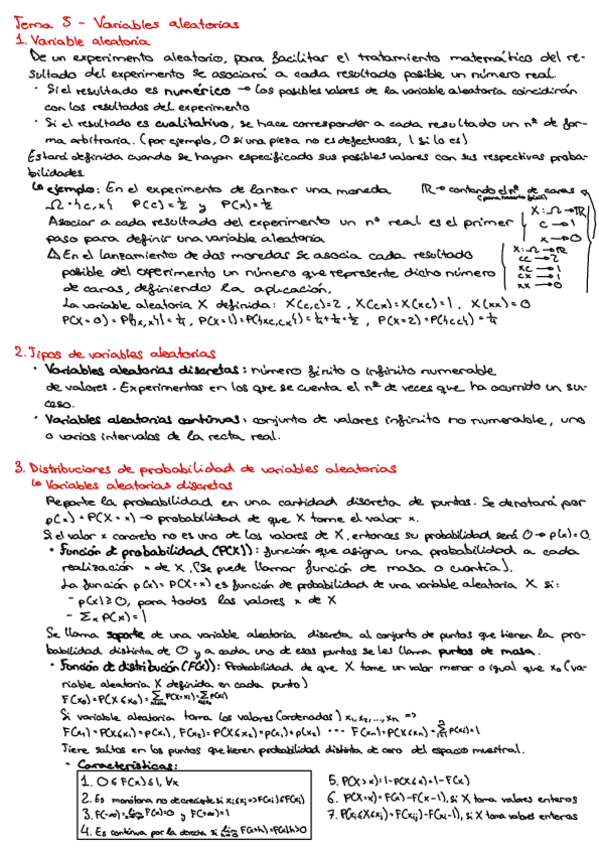 Tema 5 - Variables aleatorias
1. Variable aleatoria
De un experimento aleatorio, para facilitar el tratamiento matemático del re-
sultado del experimento se asociará a cada resultado posible un número real.
· Si el resultado es numérico → Los posibles valores de la variable aleatoria coincidirán
con los resultados del experimento
· Si el resultado es cualitativo, se hace corresponder a cada resultado un nº de for-
ma arbitraria. (por ejemplo, 0 si una pieza no es defectuosa, 1 si lo es)
Estará definida cuando se hayan especificado sus posibles valores con sus respectivas proba-
bilidades
↳ ejemplo: En el experimento de lanzar una moneda
ℝ → contando el nº de caras
Ω = {c,x} P(c) = ½ y P(x) = ½
Asociar a cada resultado del experimento un nº real es el primer
paso para definir una variable aleatoria
X: Ω → ℝ
c → 1
x → 0
△ En el lanzamiento de dos monedas se asocia cada resultado
posible del experimento un número que represente dicho número
de caras, definiendo la aplicación.
X: Ω → ℝ
cc → 2
xc → 1
cx → 1
xx → 0
La variable aleatoria X definida: X(c,c)=2, X(cx)=X(xc)=1, X(xx)=0
P(X=0) = P({x,x}) = ¼, P(X=1)=P({xc,cx})=¼+¼=½, P(X=2)=P({cc})=¼
2. Tipos de variables aleatorias
· Variables aleatorias discretas: número finito o infinito numerable
de valores. Experimentos en los que se cuenta el nº de veces que ha ocurrido un su-
ceso.
· Variables aleatorias continuas: conjunto de valores infinito no numerable, uno
o varios intervalos de la recta real.
3. Distribuciones de probabilidad de variables aleatorias
↳ Variables aleatorias discretas
Reparte la probabilidad en una cantidad discreta de puntos. Se denotará por
p(x) = P(X=x) → probabilidad de que X tome el valor x.
Si el valor x concreto no es uno de los valores de X, entonces su probabilidad será 0 → p(x)=0.
· Función de probabilidad (P(X)): función que asigna una probabilidad a cada
realización x de X. (Se puede llamar función de masa o cuantía).
La función p(x)=P(X=x) es función de probabilidad de una variable aleatoria X si:
- p(x) ≥ 0, para todos los valores x de X
- Σₓ P(x) = 1
Se llama soporte de una variable aleatoria discreta al conjunto de puntos que tienen la pro-
babilidad distinta de 0 y a cada uno de esos puntos se les llama puntos de masa.
· Función de distribución (F(x)): Probabilidad de que X tome un valor menor o igual que x₀ (va-
riable aleatoria X definida en cada punto)
F(x₀) = P(X≤x₀) =
Si variable aleatoria toma los valores (ordenados) x₁,x₂,...,xₙ =>
F(x₁) = P(X≤x₁) = p(x₁), F(x₂) = P(X≤x₂) = p(x₁)+p(x₂) ··· F(xₙ) = P(X≤xₙ) = Σ p(xᵢ) = 1
Tiene saltos en los puntos que tienen probabilidad distinta de cero del espacio muestral.
- Características:
1. 0 ≤ F(x) ≤ 1, ∀x
2. Es monótona no decreciente si xᵢ≤xⱼ => F(xᵢ)≤F(xⱼ)
3. F(-∞) = lim F(x) = 0 y F(+∞) = 1
4. Es continua por la derecha si lim F(x+h) = F(x) h>0
5. P(X>x) = 1-P(X≤x) = 1-F(x)
6. P(X=x) = F(x)-F(x-1), si X toma valores enteros
7. P(xᵢ≤X≤xⱼ) = F(xⱼ)-F(xᵢ-1), si X toma valores enteros